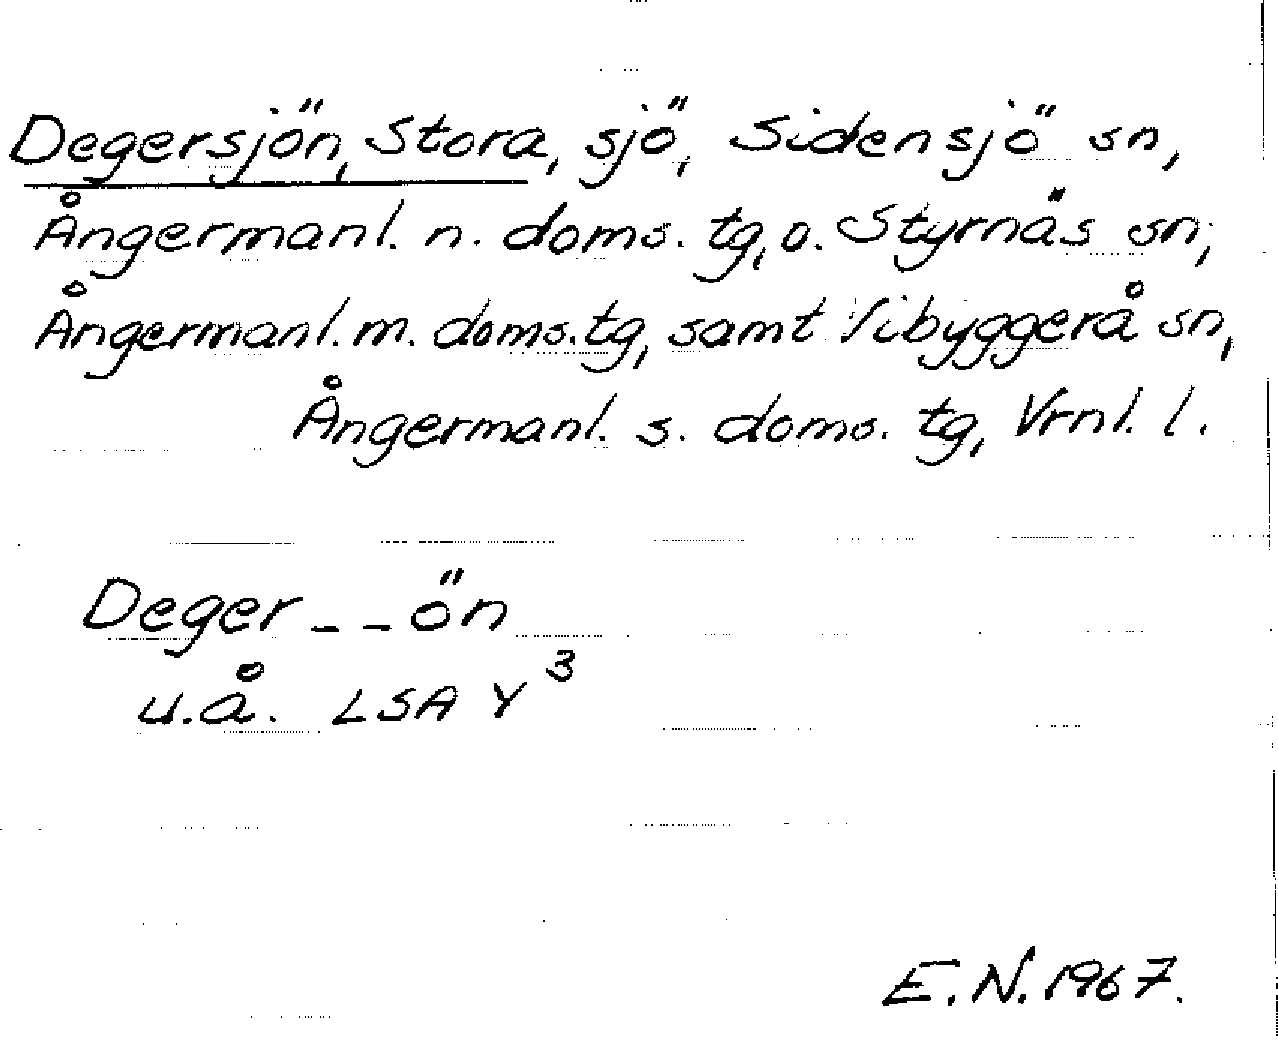 Degersjön, Stora, sjö, Sidensjö sn,
Ångermanl. n. doms. tg, o. Styrnäs sn,
Ångermanl. m. doms. tg, samt Vibyggerå sn,
Ångermanl. s. doms. tg, Vrnl. l.
Deger _ _ ön
u.å. LSA Y³
E.N. 1967.